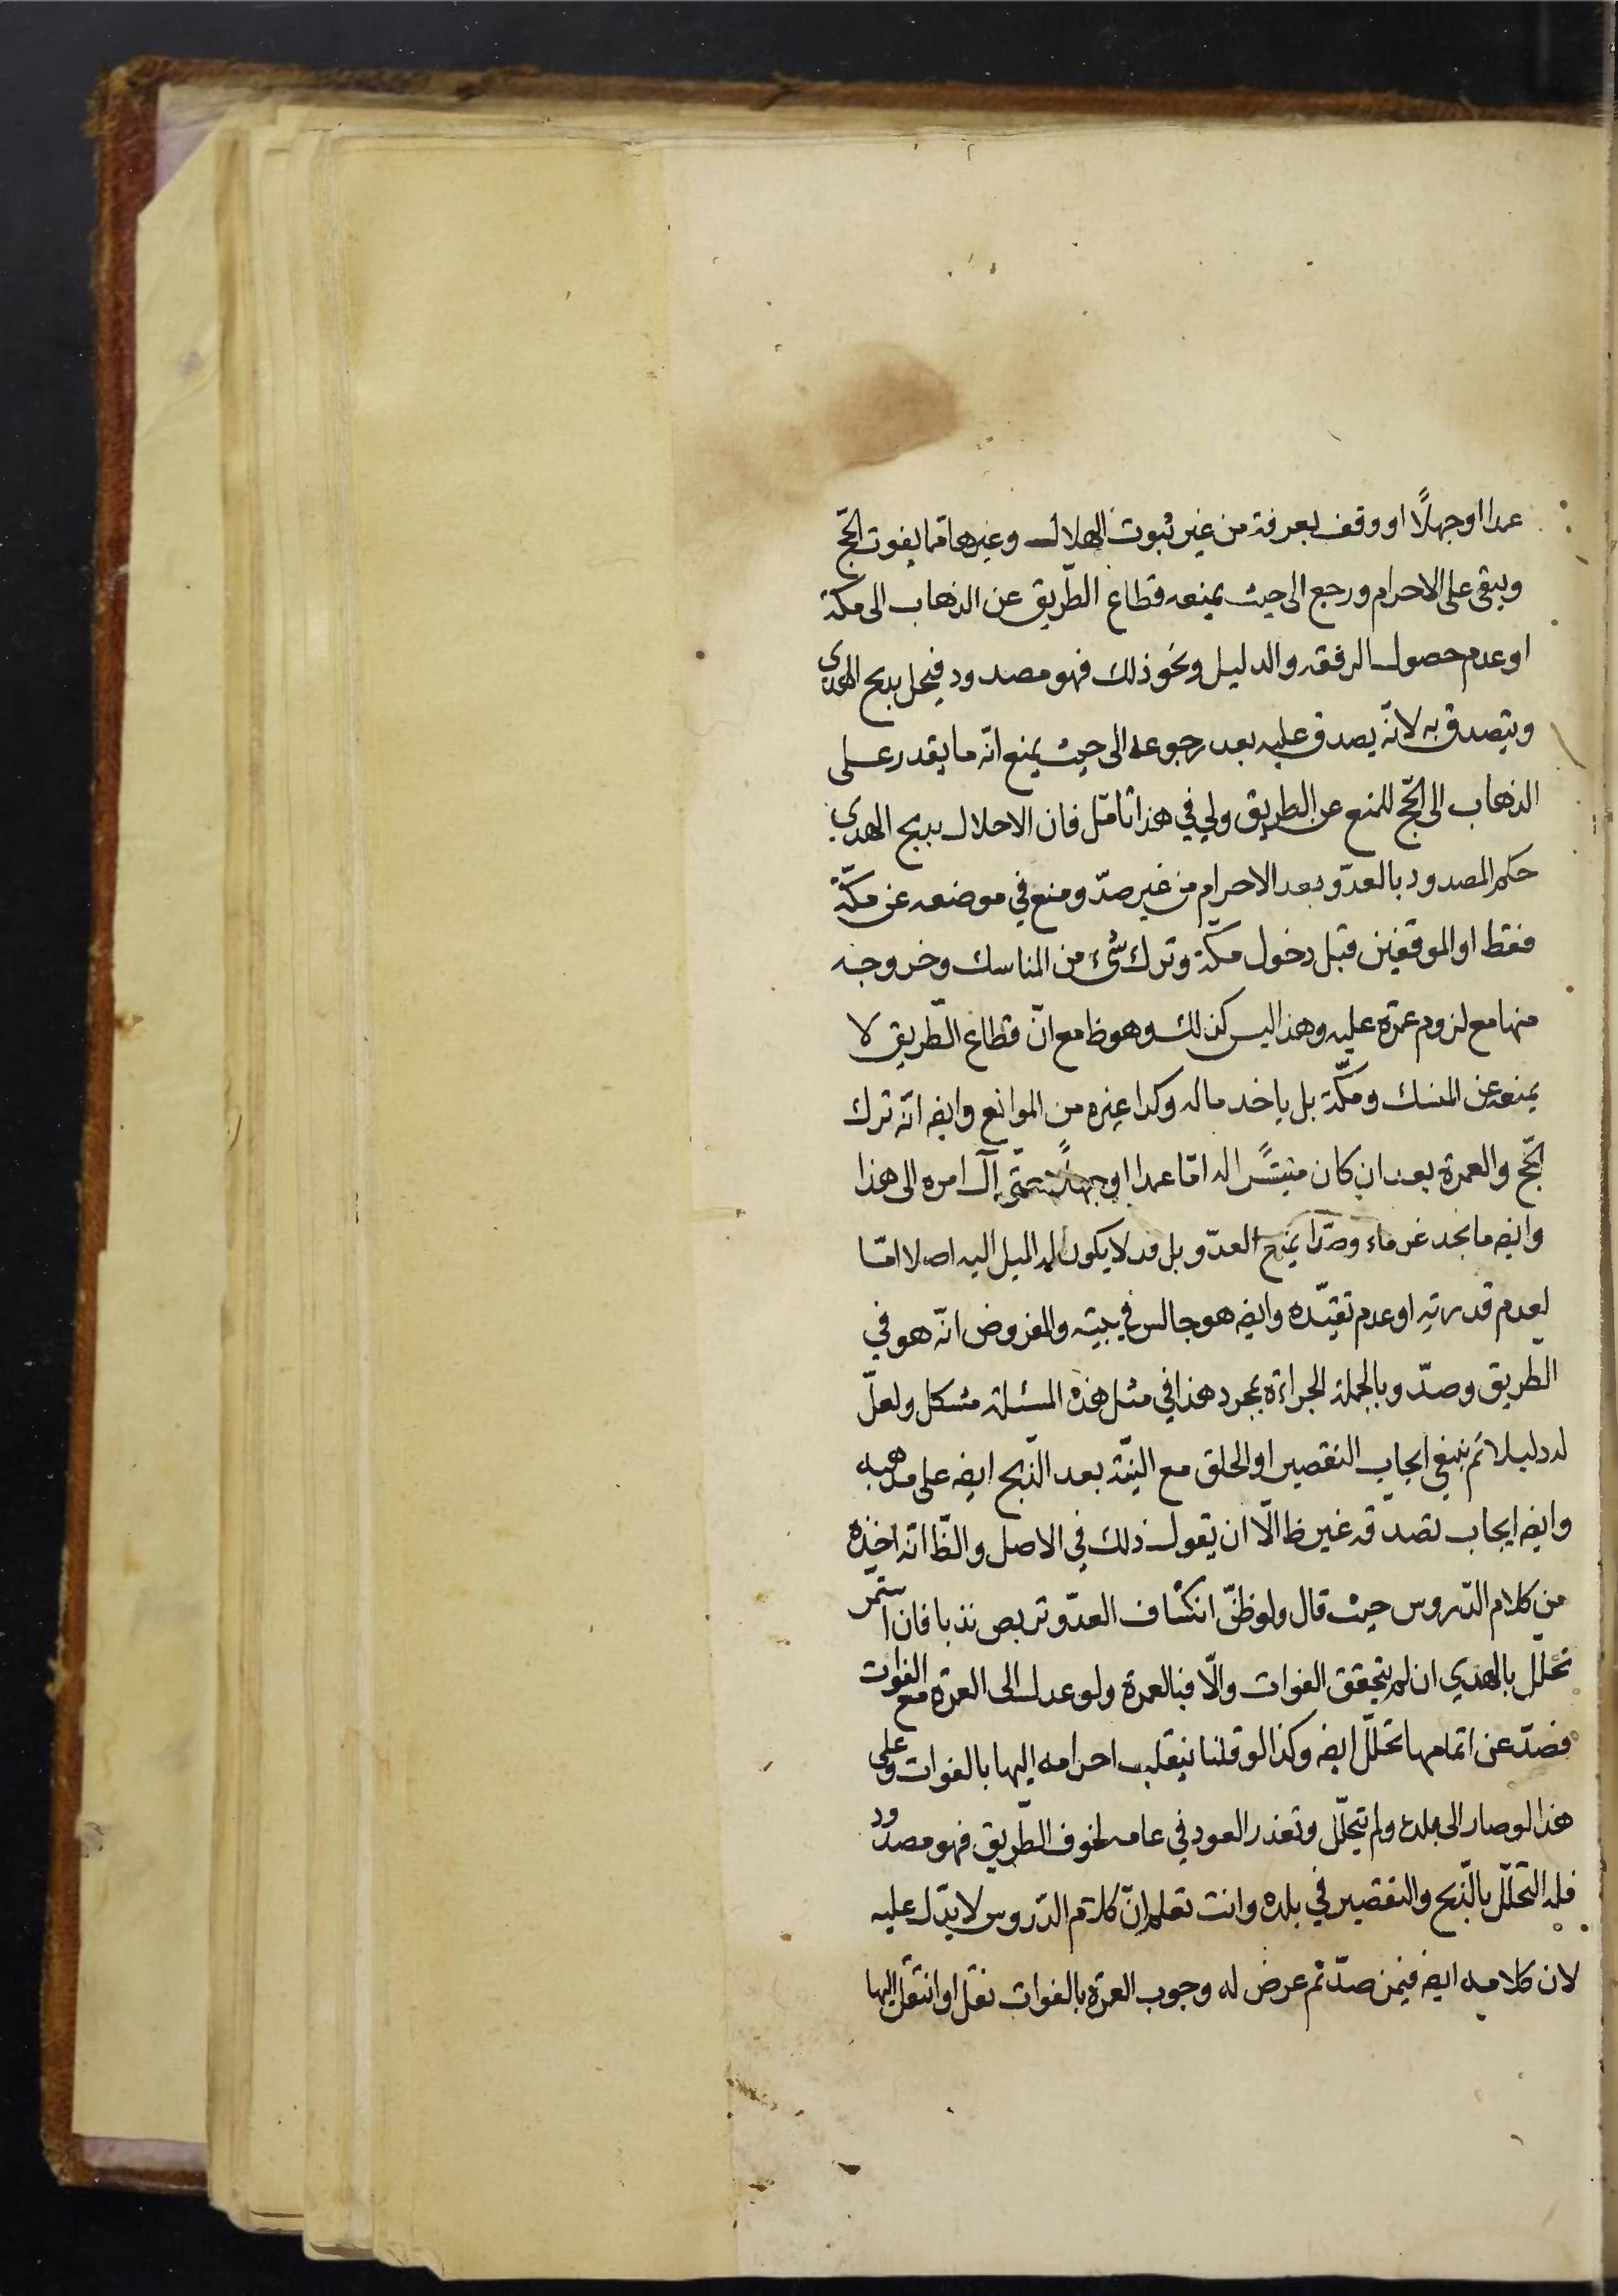 عمدا اوجهلًا او وقف بعرفة من غير ثبوت الهلال وغيرها مما يفوت الحجّ
ويبقى على الاحرام ورجع الى حيث يمنعه قطاع الطّريق عن الذهاب الى مكة
او عدم حصول الرفقه والدليل ونحو ذلك فهو مصدود فيحل بذبح الهدى
ويتصدق به لانّه يصدق عليه بعد رجوعه الى حيث يمنع انّه ما يقدر على
الذهاب الى الحجّ للمنع عن الطريق ولي في هذا تامّل فان الاحلال بذبح الهدي
حكم المصدود بالعدّو بعد الاحرام من غير صدّ ومنع في موضعه عن مكّة
فقط او الموقفين قبل دخول مكّة وترك شئ من المناسك وخروجه
منها مع لزوم عمرة عليه وهذا ليس كذلك وهو ظ مع انّ قطاع الطّريق لا
يمنعه عن المنسك ومكّة بل ياخذ ماله وكذا غيره من الموانع وايضه انّه ترك
الحجّ والعمرة بعد ان كان متيسّرًا له امّا عمدا اوجهلًا حتّى آل امره الى هذا
وايضه ما نجد غرماء وصدّا يمنع العدّو بل قد لا يكون له الميل اليه اصلا امّا
لعدم قدرته او عدم تقيّده وايضه هو جالس في بيته والمفروض انّه هو في
الطّريق وصدّ وبالجملة الجراءة بمجرد هذا في مثل هذه المسئلة مشكل ولعلّ
له دليلا ثم ينبغي ايجاب التقصير او الحلق مع النيّة بعد الذّبح ايضه على مذهبه
وايضه ايجاب تصدّقه غير ظ الّا ان يقول ذلك في الاصل والظّ انّه اخذه
من كلام الدّروس حيث قال ولو ظنّ انكشاف العدّو تربص ندبا فان استمر
تحلّل بالهدي ان لم يتحقق الفوات والّا فبالعمرة ولو عدل الى العمرة مع الفوات
فصدّ عن اتمامها تحلّل ايضه وكذا لو قلنا ينقلب احرامه اليها بالفوات وعلى
هذا لو صار الى بلده ولم يتحلّل وتعذر العود في عامه لخوف الطّريق فهو مصدّود
فله التحلّل بالذّبح والتقصير في بلده وانت تعلم انّ كلام الدّروس لا يدّل عليه
لان كلامه ايضه فيمن صدّ ثم عرض له وجوب العمرة بالفوات نقل او انتقل اليها